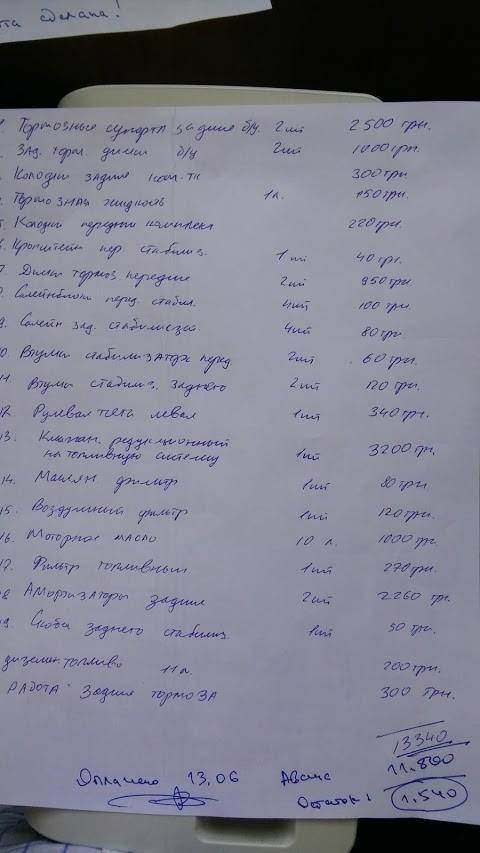 та сделана!
1. Тормозные супорта задние б/у. 2 шт 2500 грн.
. Зад. торм. диски б/у 2 шт 1000 грн.
. Колодки задние ком-тк 300 грн
. Тормозная жидкость 1 л. 150 грн.
5. Колодки передний комплект 220 грн.
6. Кронштейн пер. стабилиз. 1 шт 40 грн.
7. Диски тормоз. передние 2 шт 950 грн.
Салейнблоки перед. стабил. 4 шт 100 грн.
9. Салейн зад. стабилизай. 4 шт 80 грн
10. Втулки стабилизатора перед. 2 шт .60 грн.
11. Втулки стабилиз. заднего 2 шт 120 грн.
12. Рулевая тяга левая 1 шт 340 грн.
13. Клапан. редукционный
на топливную систему 1 шт 3200 грн.
14. Маслян фильтр 1 шт 80 грн
15. Воздушный фильтр 1 шт 120 грн.
16. Моторное масло 10 л. 1000 грн
17. Фильтр топливный 1 шт 270 грн.
18 Амортизаторы задние 2 шт 2260 грн.
19. Скоба заднего стабилиз. 1 шт 50 грн.
дизельн топливо 11 л. 200 грн.
РАБОТА Задние тормоза 300 грн.
13340
11.800
Оплачено 13,06 Аванс
Остаток: 1.540